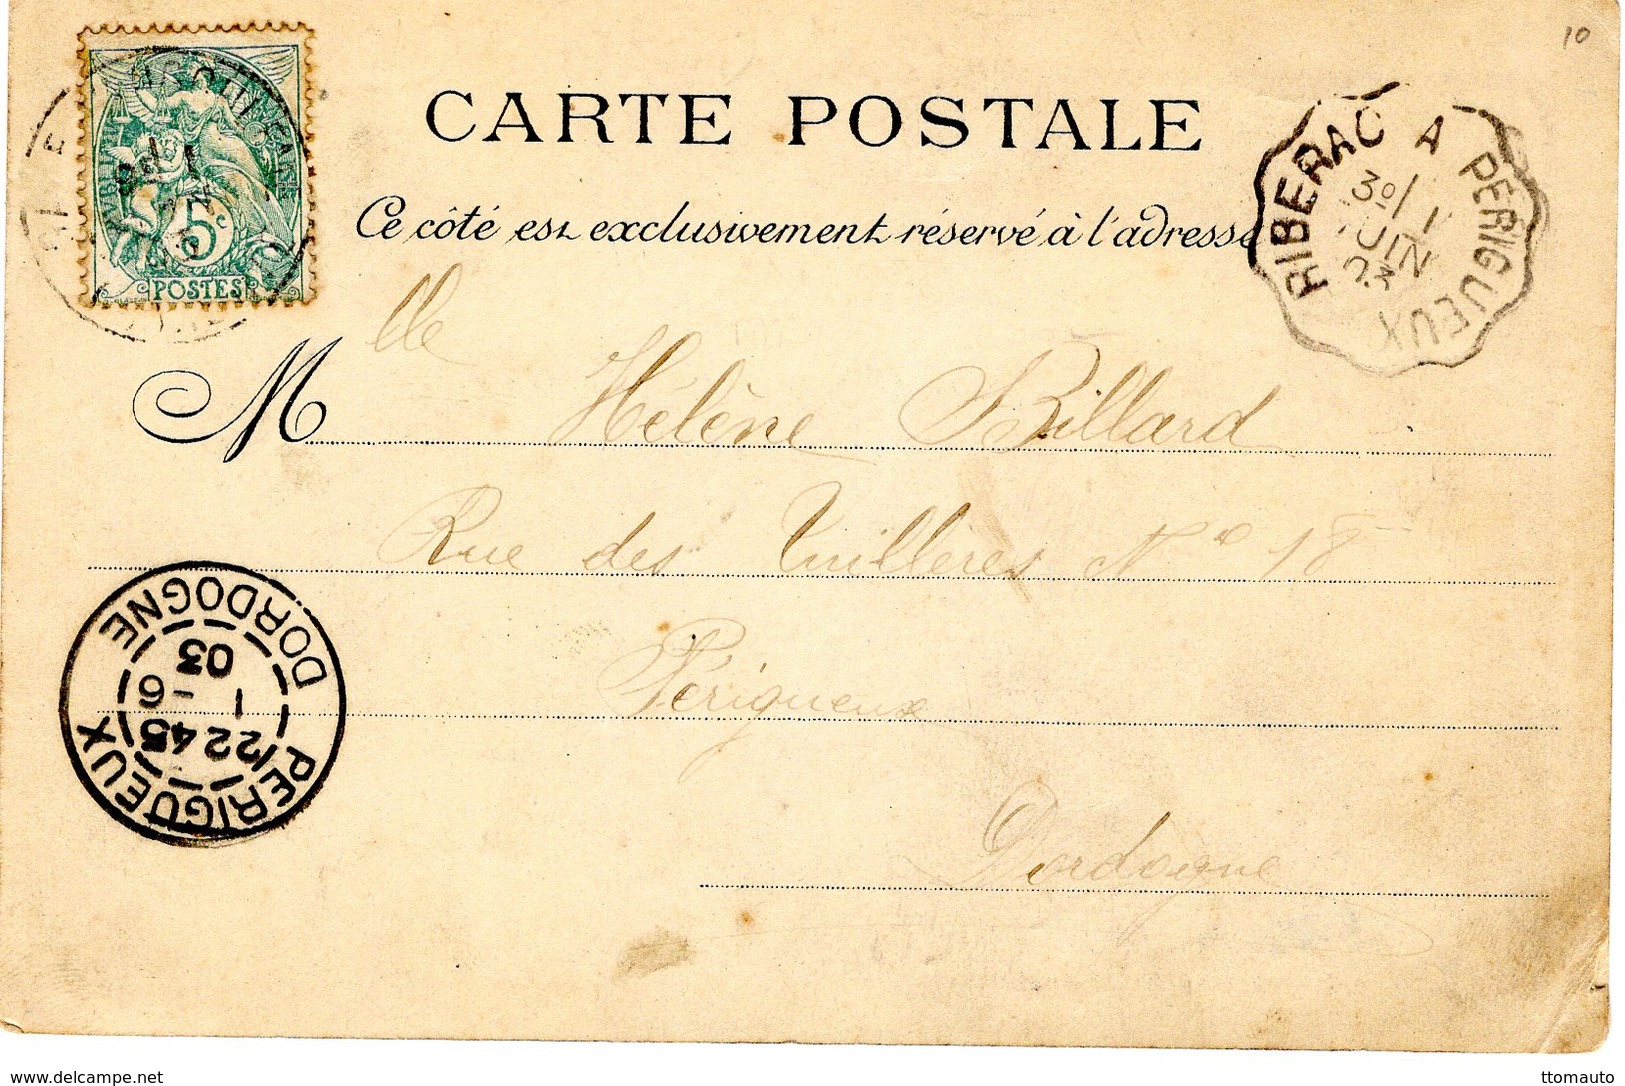 10
CARTE POSTALE
Ce côté est exclusivement réservé à l'adresse
5c
POSTES
RIBERAC A PERIGUEUX
3º/ 1
JUIN
03
Mlle Hélène Billard
Rue des Tuillères Nº 18
Périgueux
Dordogne
PERIGUEUX
22 45
1 - 6
03
DORDOGNE
www.delcampe.net
ttomauto